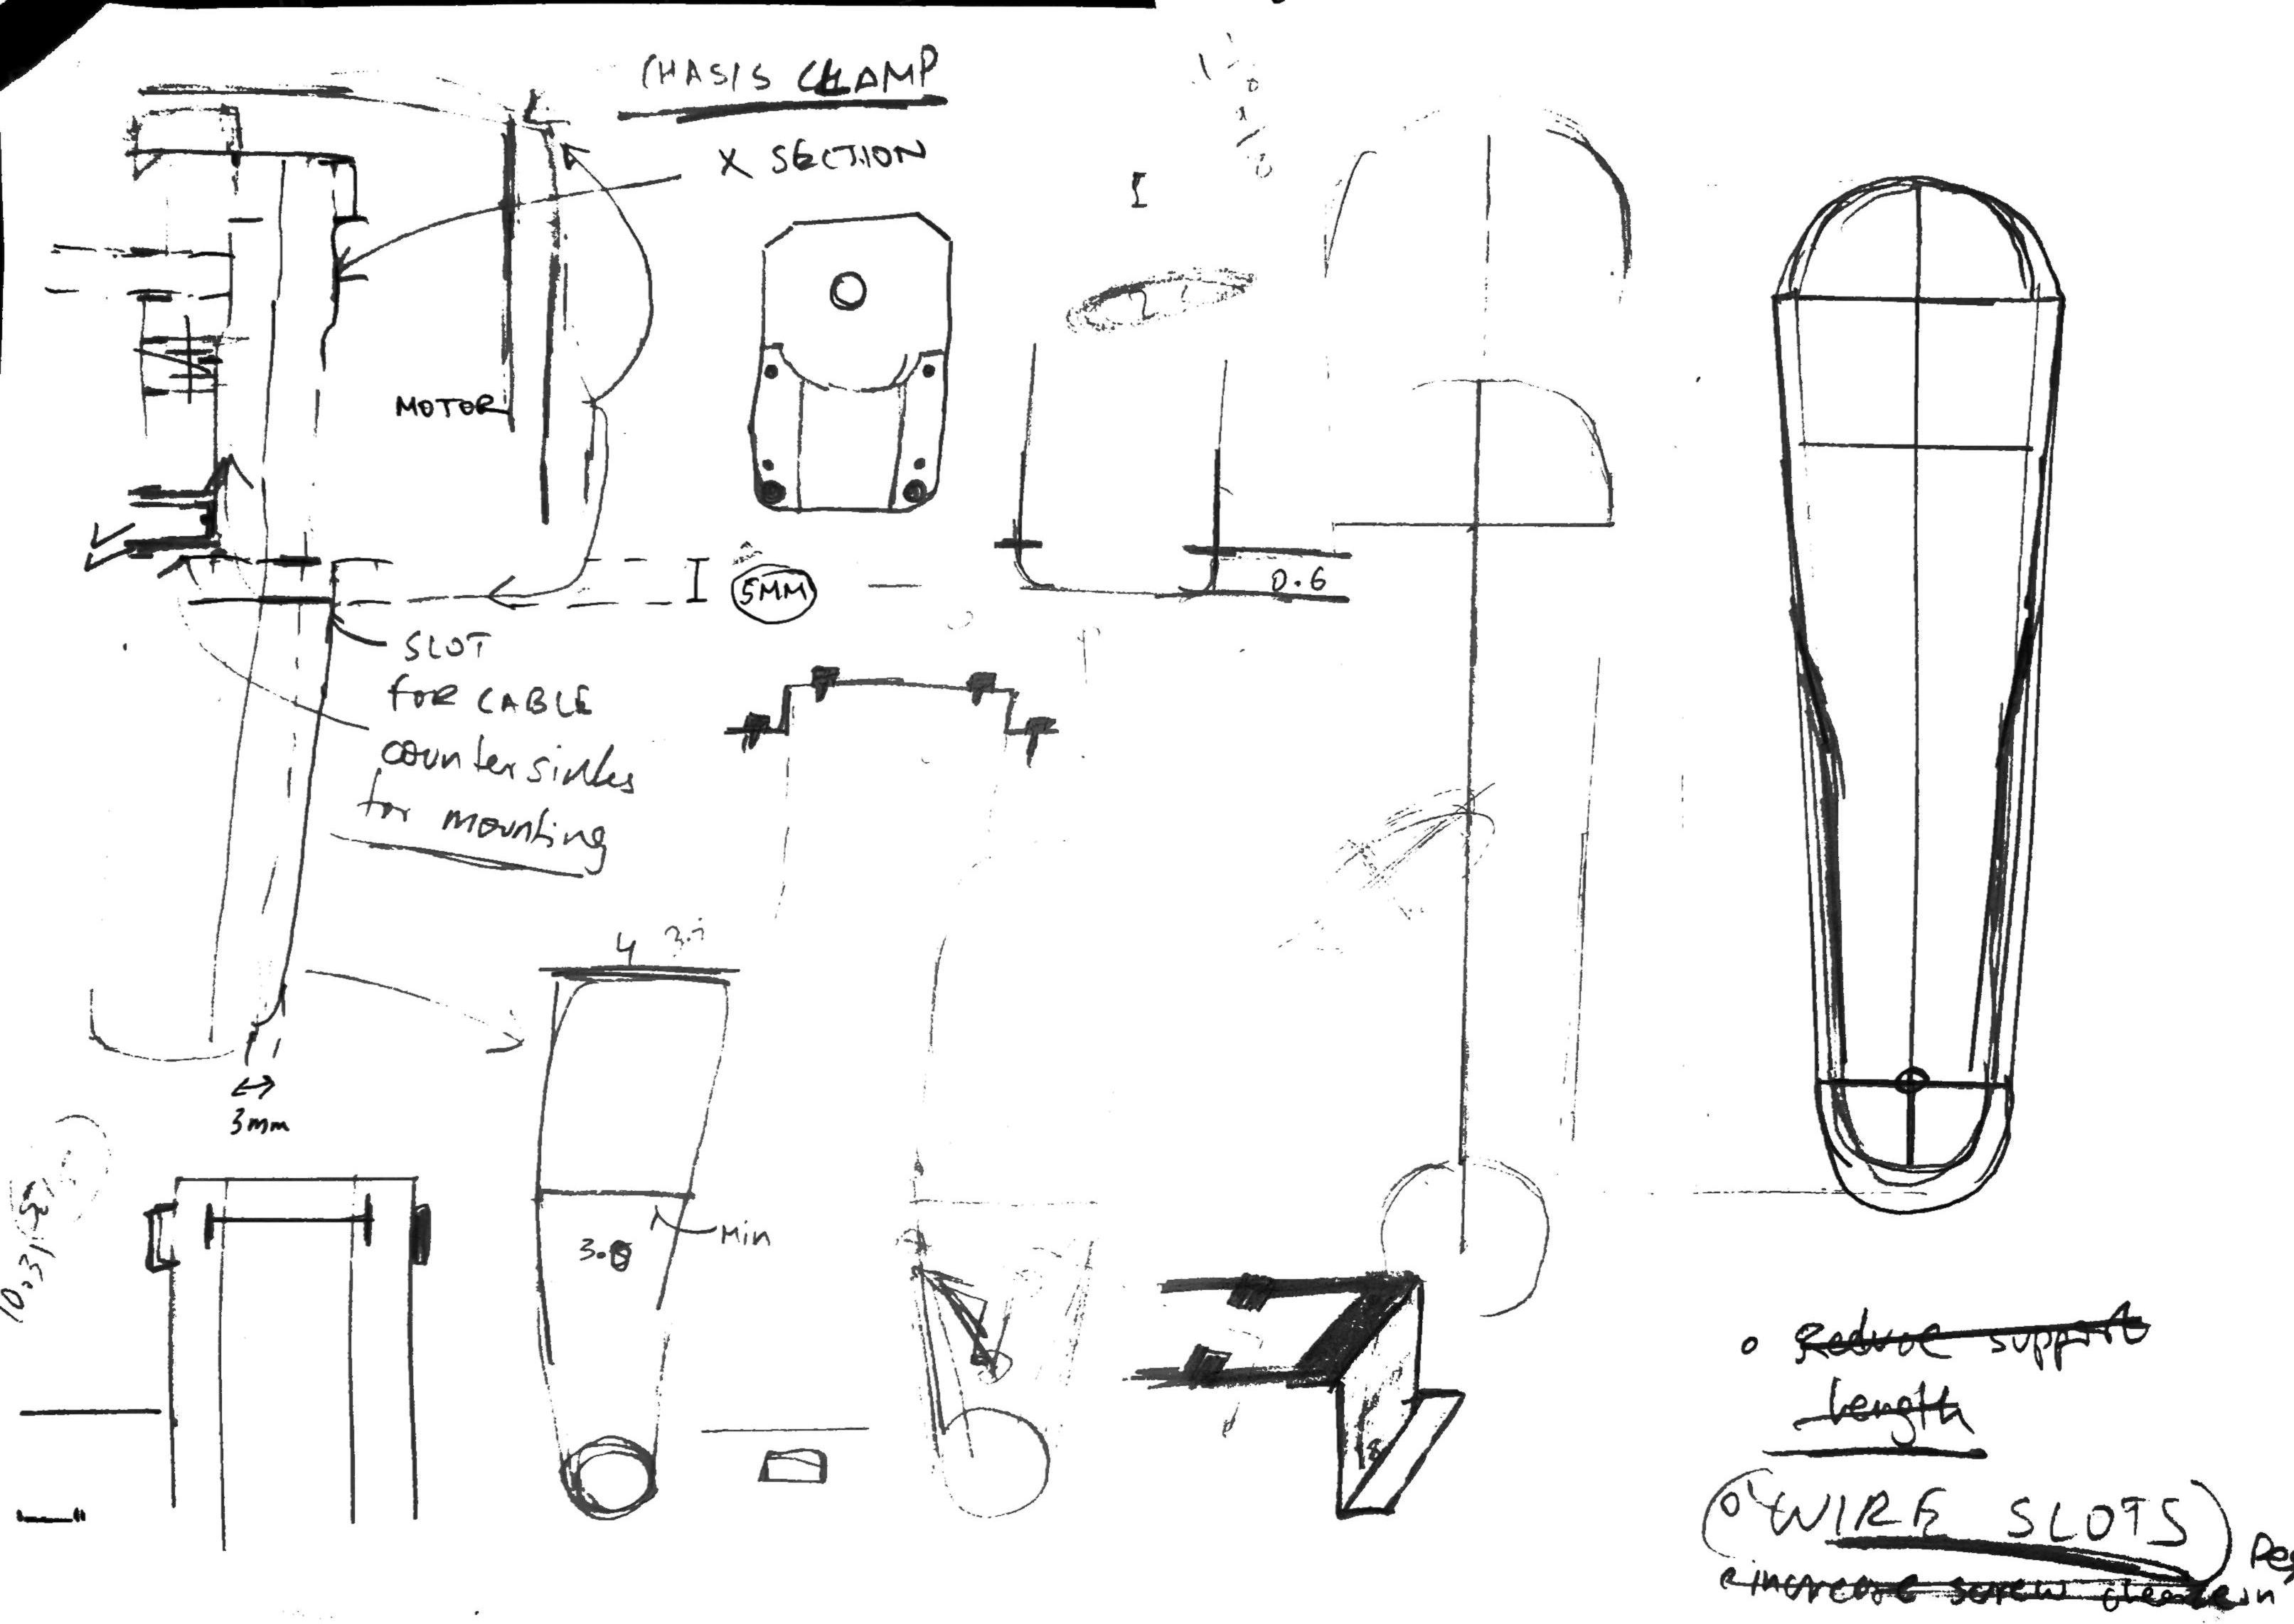 CHASIS CLAMP
X SECTION
MOTOR
5MM
0.6
SLOT
FOR CABLE
countersinks
for mounting
4
3mm
Min
3.0
Reduce support
length
WIRE SLOTS
increase screw